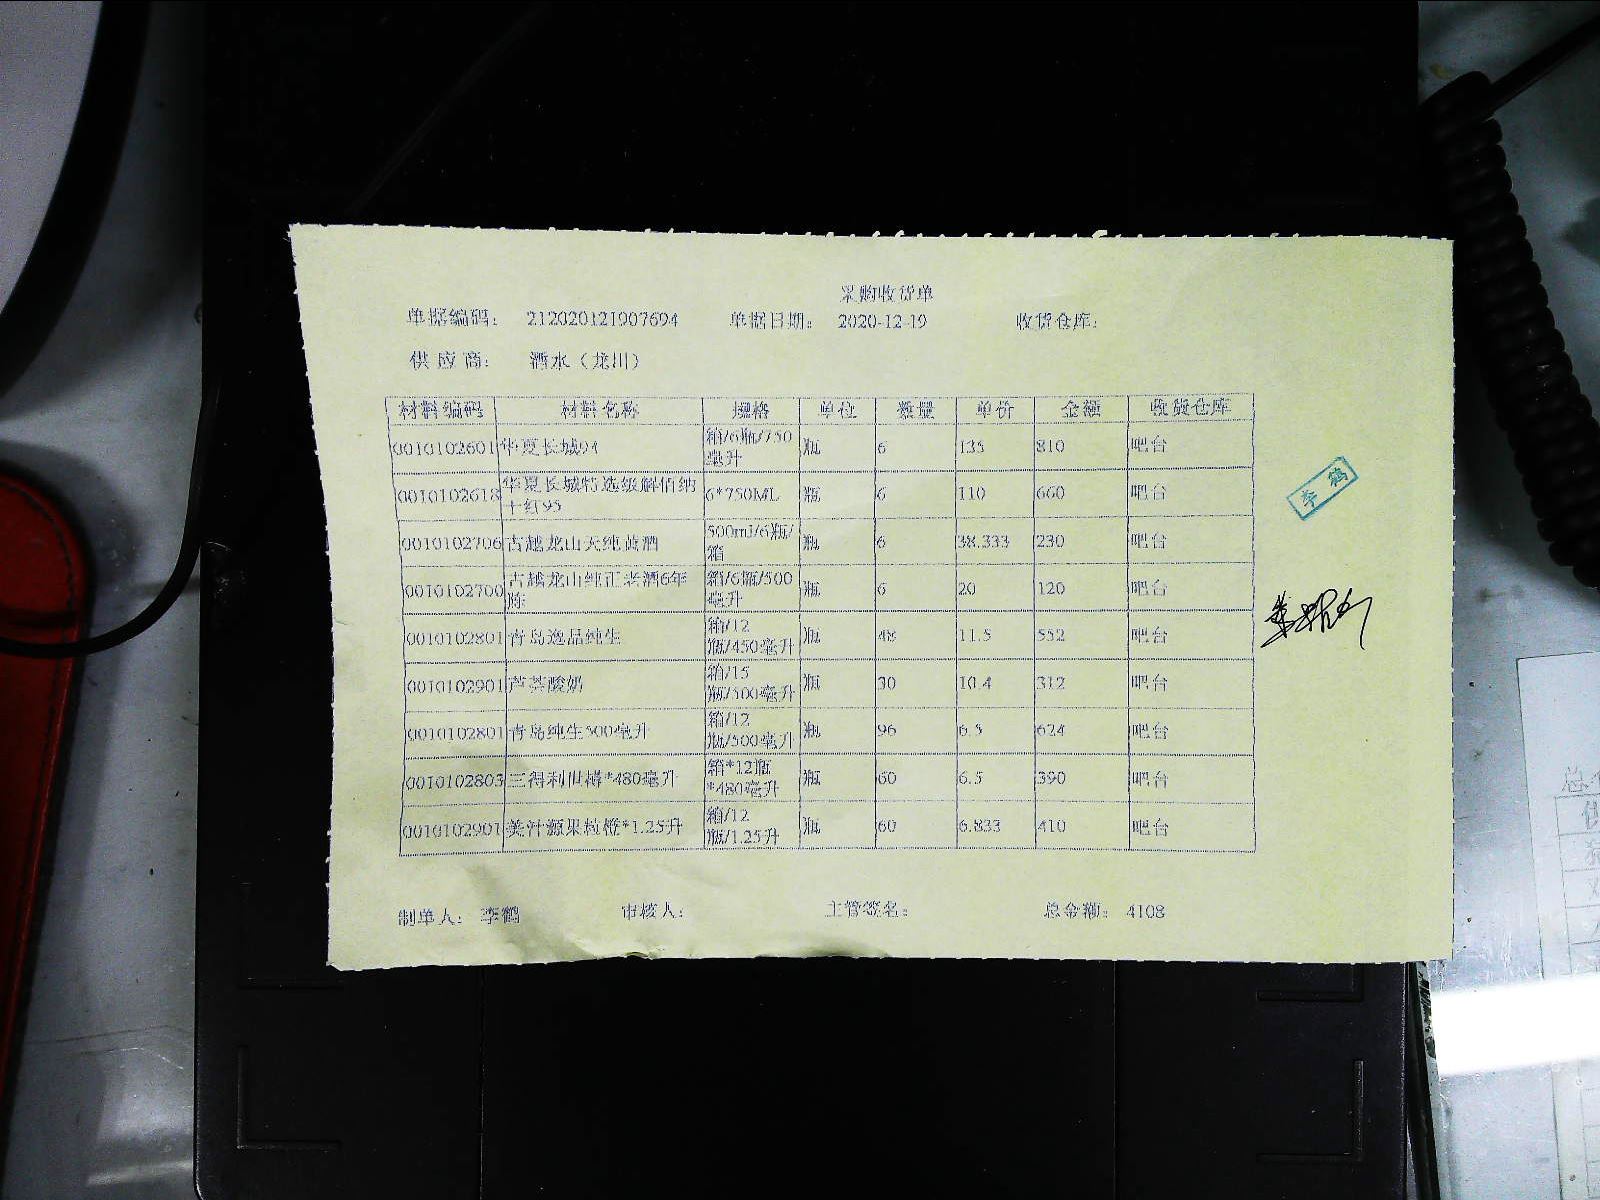 采购收货单
单据编码： 212020121907694 单据日期： 2020-12-19 收货仓库：
供 应 商： 酒水（龙川）
材料编码 材料名称 规格 单位 数量 单价 金额 收货仓库
0010102601 华夏长城94 箱/6瓶/750毫升 瓶 6 135 810 吧台
0010102618 华夏长城特选级解佰纳干红95 6*750ML 瓶 6 110 660 吧台
0010102706 古越龙山天纯黄酒 500ml/6瓶/箱 瓶 6 38.333 230 吧台
0010102700 古越龙山纯正老酒6年陈 箱/6瓶/500毫升 瓶 6 20 120 吧台
0010102801 青岛逸品纯生 箱/12瓶/450毫升 瓶 48 11.5 552 吧台
0010102901 芦荟酸奶 箱/15瓶/500毫升 瓶 30 10.4 312 吧台
0010102801 青岛纯生500毫升 箱/12瓶/500毫升 瓶 96 6.5 624 吧台
0010102803 三得利世樽*480毫升 箱*12瓶*480毫升 瓶 60 6.5 390 吧台
0010102901 美汁源果粒橙*1.25升 箱/12瓶/1.25升 瓶 60 6.833 410 吧台
制单人： 李鹤 审核人： 主管签名： 总金额： 4108
李鹤